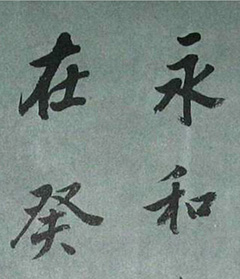 永和
在癸